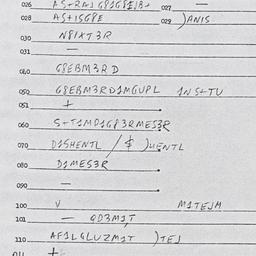 026 AS+RAJ G8IG8IJB+ 027 —
028 AS+ISG8E 029 )ANIS
030 N8IXT3R
031 —
040 G8EBM3RD
050 G8EBM3RD1MGUPL 1NS+TU
051 +
060 S+T1MD1G83RMES3R
070 D1SHENTL / $ )HENTL
080 D1MES3R
090 —
100 V M1TEJM
101 — QD3M1T
110 AF1LGLUZM1T )TEJ